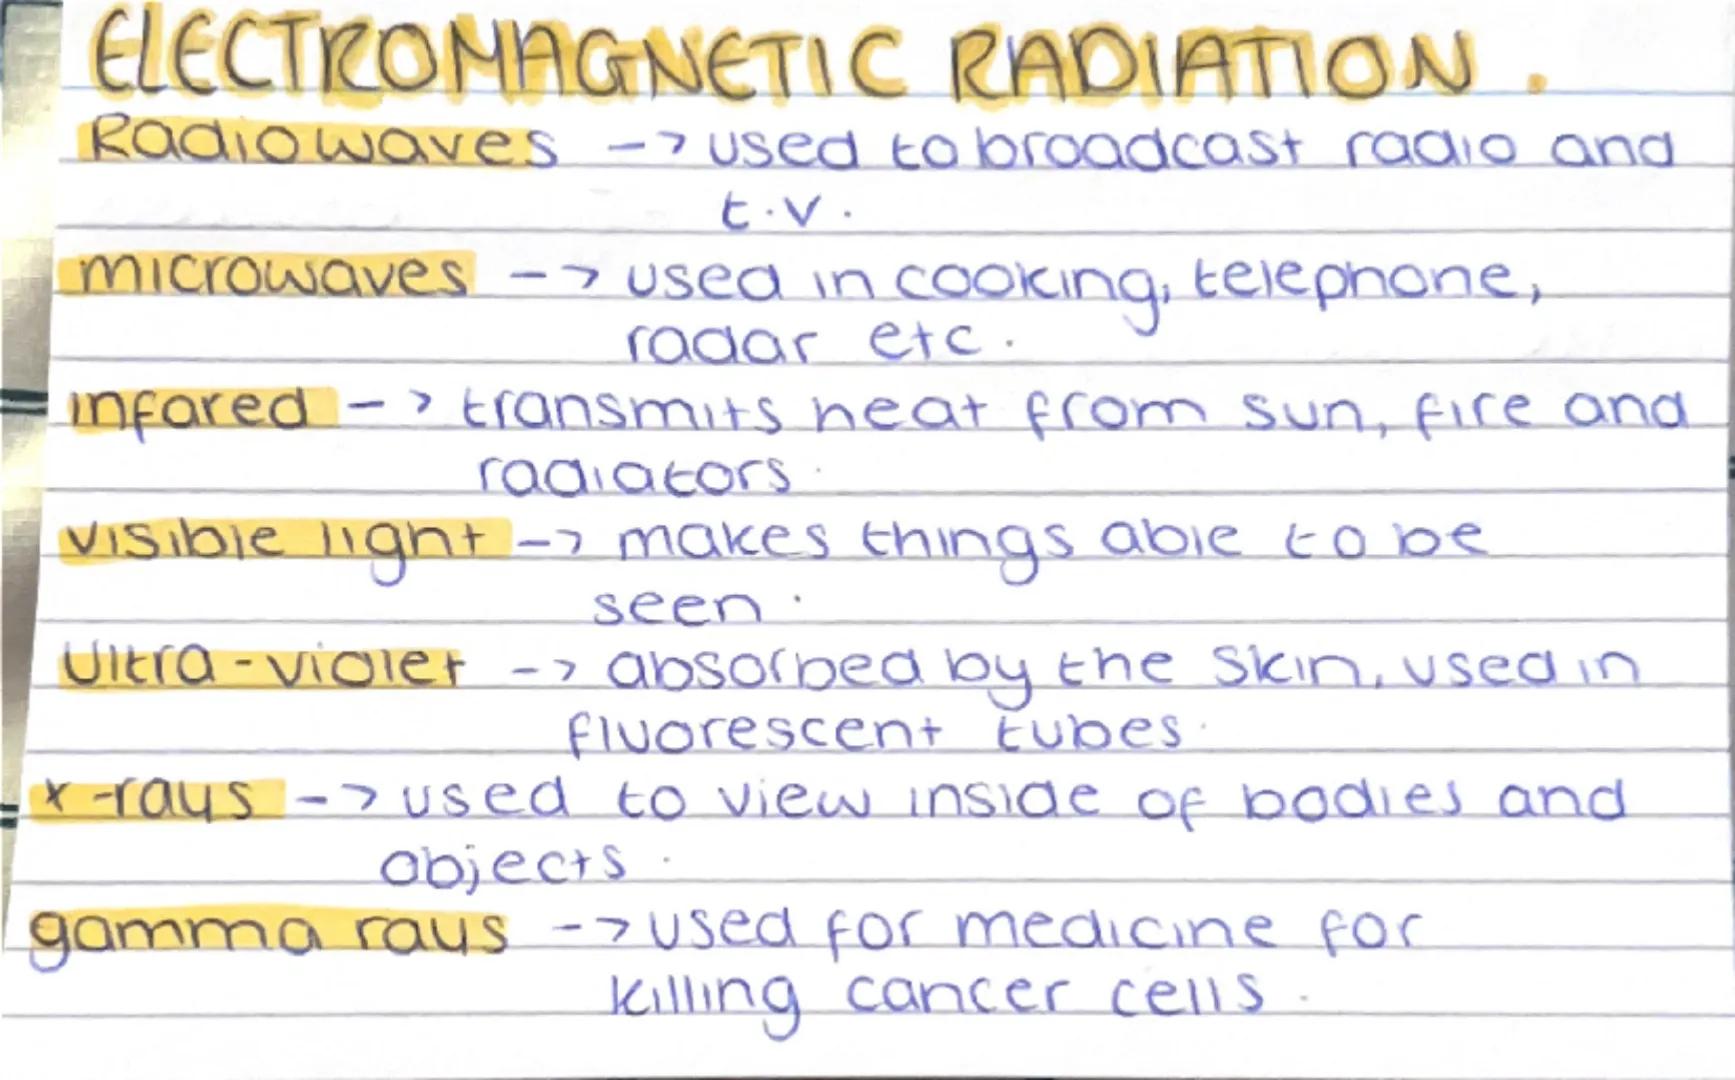 ELECTROMAGNETIC RADIATION.
Radiowaves --> used to broadcast radio and
t.v.
microwaves --> used in cooking, telephone,
radar etc.
infared --> transmits heat from sun, fire and
radiators.
visible light --> makes things able to be
seen.
Ultra-violet --> absorbed by the skin, used in
fluorescent tubes.
x-rays --> used to view inside of bodies and
objects.
gamma rays --> used for medicine for
killing cancer cells.